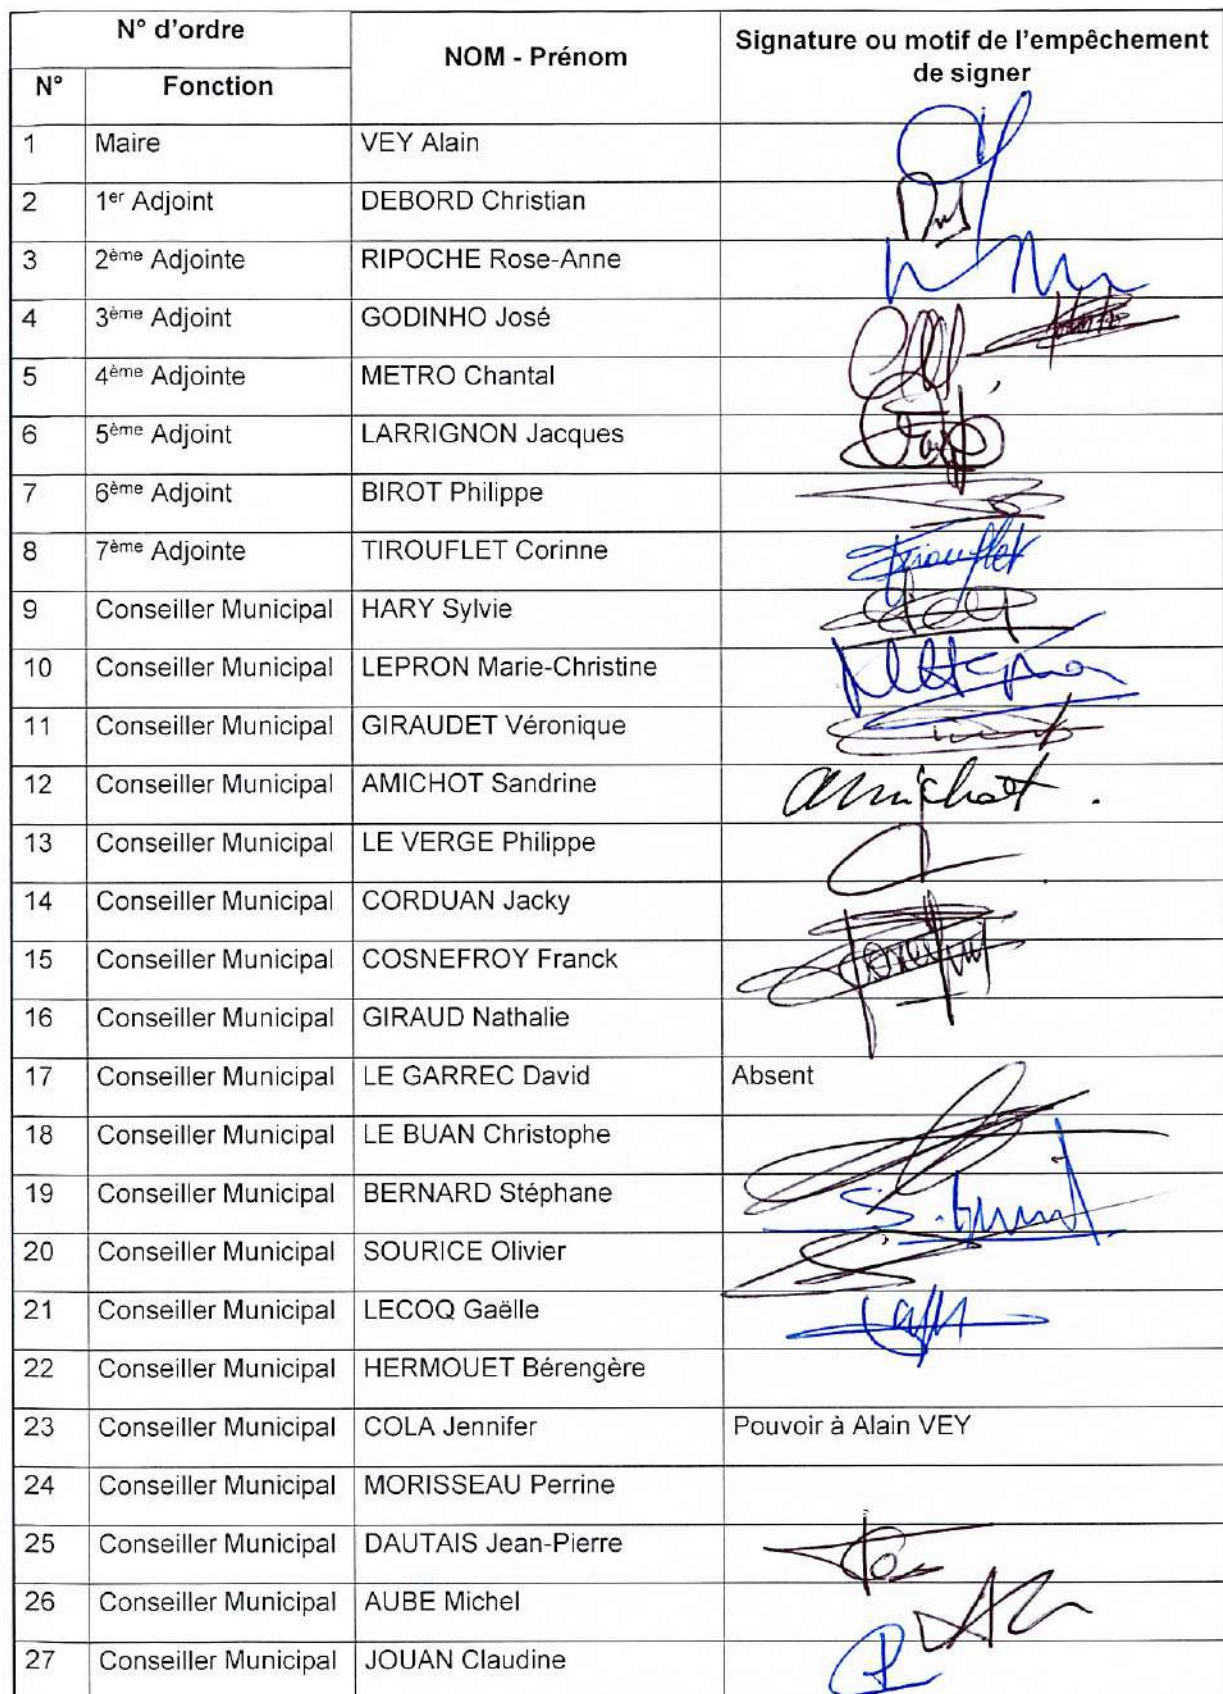 N° d'ordre
NOM - Prénom
Signature ou motif de l'empêchement
de signer
N° Fonction
1 Maire VEY Alain
2 1er Adjoint DEBORD Christian
3 2ème Adjointe RIPOCHE Rose-Anne
4 3ème Adjoint GODINHO José
5 4ème Adjointe METRO Chantal
6 5ème Adjoint LARRIGNON Jacques
7 6ème Adjoint BIROT Philippe
8 7ème Adjointe TIROUFLET Corinne Tirouflet
9 Conseiller Municipal HARY Sylvie
10 Conseiller Municipal LEPRON Marie-Christine
11 Conseiller Municipal GIRAUDET Véronique
12 Conseiller Municipal AMICHOT Sandrine amichot.
13 Conseiller Municipal LE VERGE Philippe
14 Conseiller Municipal CORDUAN Jacky
15 Conseiller Municipal COSNEFROY Franck
16 Conseiller Municipal GIRAUD Nathalie
17 Conseiller Municipal LE GARREC David Absent
18 Conseiller Municipal LE BUAN Christophe
19 Conseiller Municipal BERNARD Stéphane
20 Conseiller Municipal SOURICE Olivier
21 Conseiller Municipal LECOQ Gaëlle
22 Conseiller Municipal HERMOUET Bérengère
23 Conseiller Municipal COLA Jennifer Pouvoir à Alain VEY
24 Conseiller Municipal MORISSEAU Perrine
25 Conseiller Municipal DAUTAIS Jean-Pierre
26 Conseiller Municipal AUBE Michel
27 Conseiller Municipal JOUAN Claudine